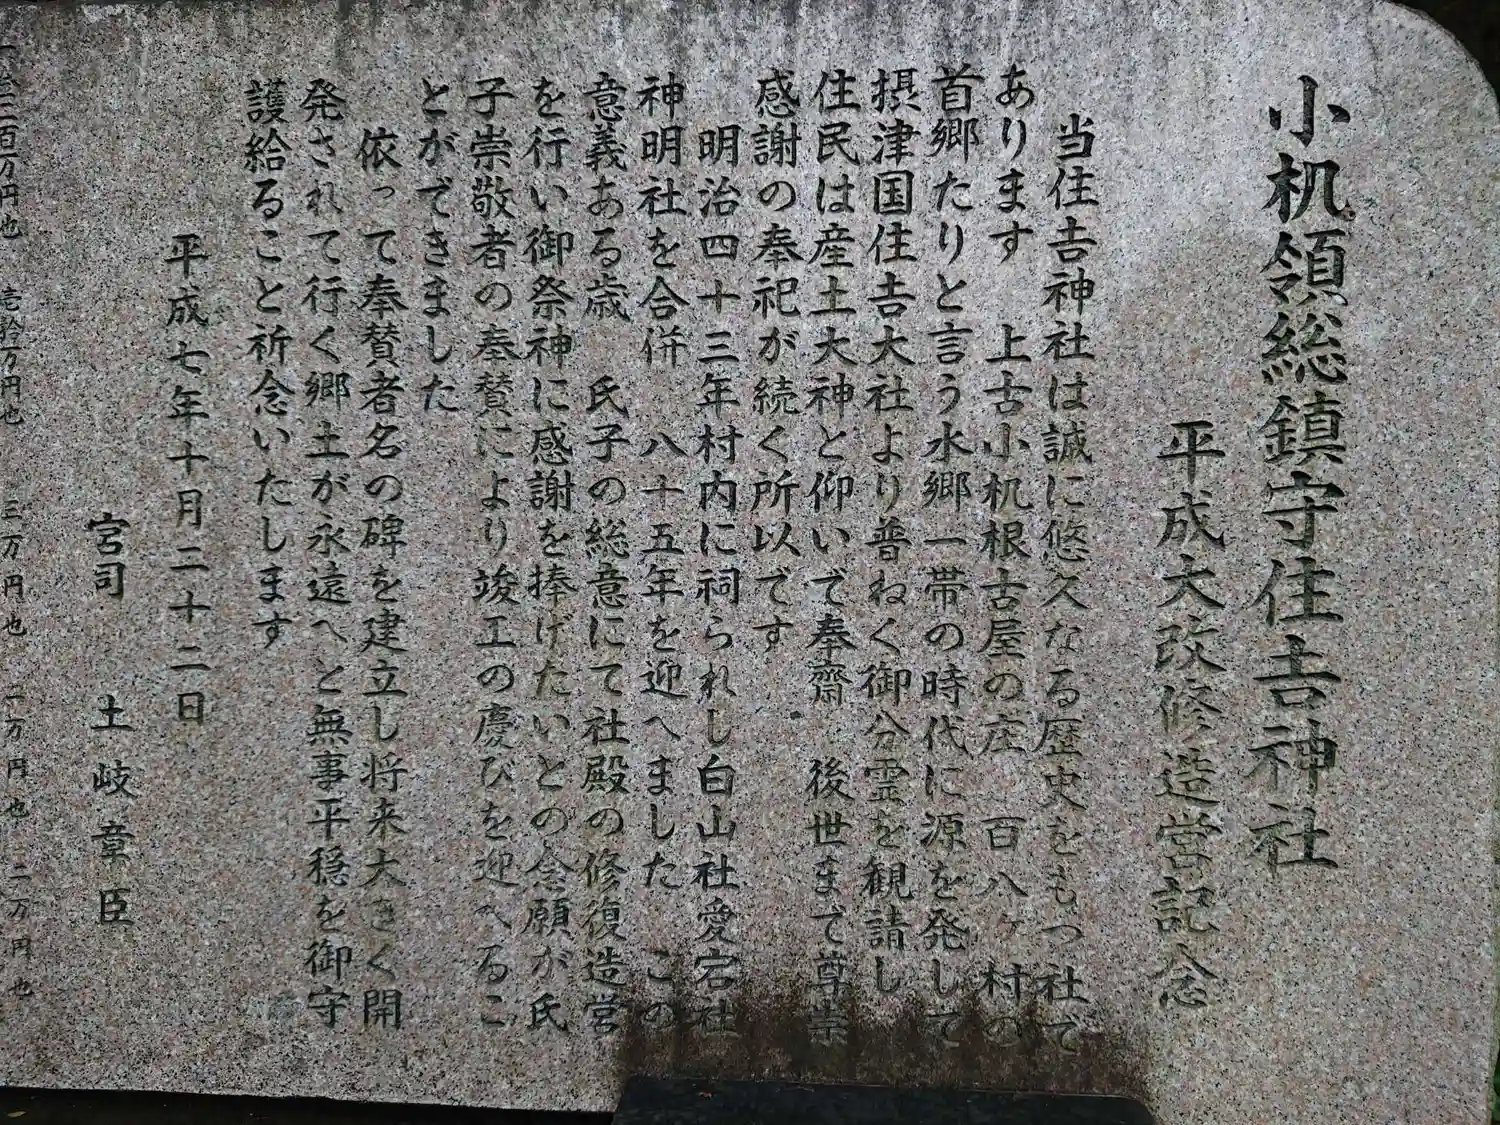 小机領総鎮守住吉神社
平成大改修造営記念
当住吉神社は誠に悠久なる歴史をもつ社で
あります　上古小机根古屋の庄　百八ヶ村の
首郷たりと言う水郷一帯の時代に源を発して
摂津国住吉大社より普ねく御分霊を観請し
住民は産土大神と仰いで奉齋　後世まで尊崇
感謝の奉祀が続く所以です
明治四十三年村内に祠られし白山社愛宕社
神明社を合併　八十五年を迎へました　この
意義ある歳　氏子の総意にて社殿の修復造営
を行い御祭神に感謝を捧げたいとの念願が氏
子崇敬者の奉賛により竣工の慶びを迎へるこ
とができました
依って奉賛者名の碑を建立し将来大きく開
発されて行く郷土が永遠へと無事平穏を御守
護給ること祈念いたします
平成七年十月二十二日
宮司　土岐章臣
百万円也　壱幹万円也　三万円也　一万円也　二万円也